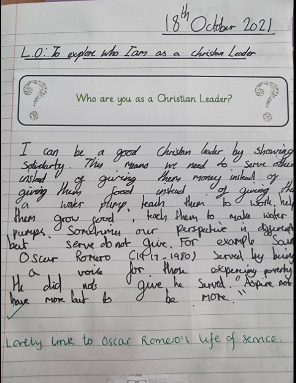 18th October 2021
L.O: To explore who I am as a christian Leader
Who are you as a Christian Leader?
I can be a good Christian leader by showing
Solidarity. This means we need to serve them
instead of giving them money instead of
giving them food instead of giving the
a water pump, teach them to work, help
them grow food, teach them to make water
pumps. Sometimes our perspective is different
but serve do not give. For example Saint
Oscar Romero (1917-1980) Served by being
a voice for those experiencing poverty
He did not give he served. "Aspire not
have more but to be more."
Lovely link to Oscar Romero's life of service.